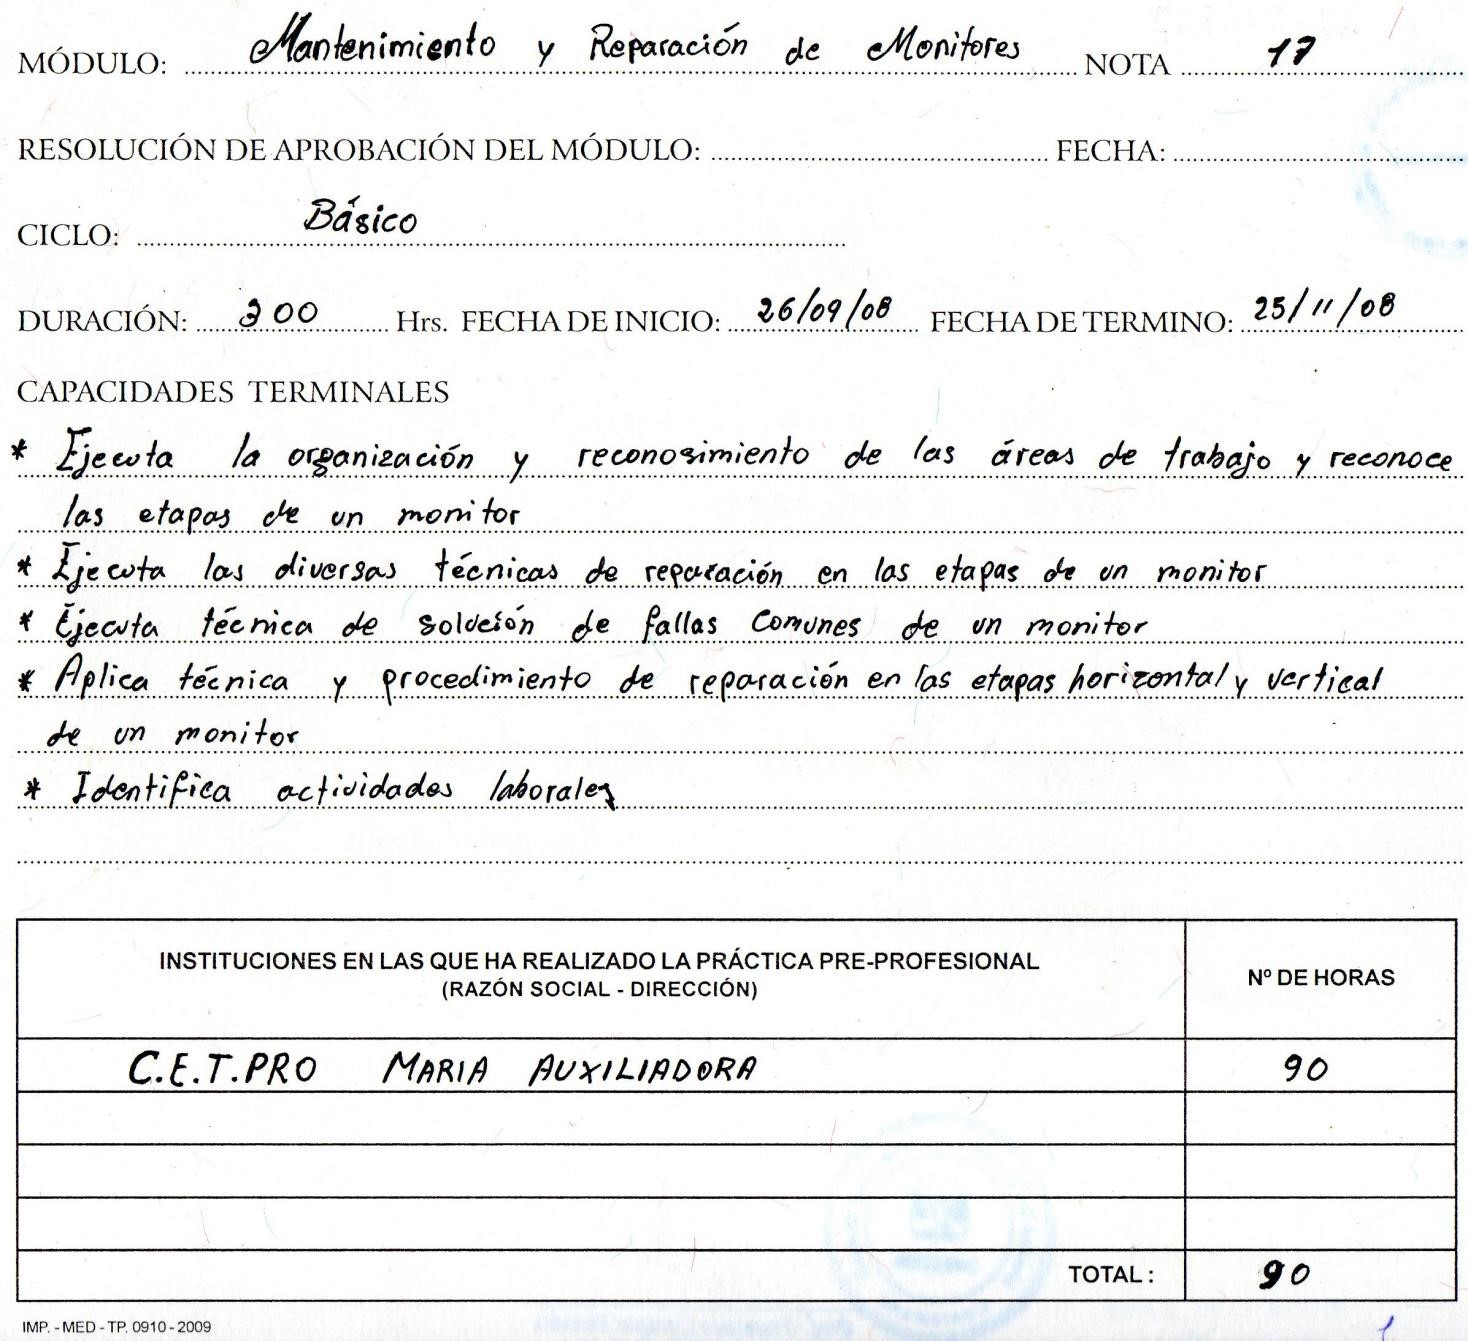 MÓDULO: Mantenimiento y Reparación de Monitores NOTA 17
RESOLUCIÓN DE APROBACIÓN DEL MÓDULO: FECHA:
CICLO: Básico
DURACIÓN: 300 Hrs. FECHA DE INICIO: 26/09/08 FECHA DE TERMINO: 25/11/08
CAPACIDADES TERMINALES
* Ejecuta la organización y reconosimiento de las áreas de trabajo y reconoce
las etapas de un monitor
* Ejecuta las diversas técnicas de reparación en las etapas de un monitor
* Ejecuta técnica de solución de fallas comunes de un monitor
* Aplica técnica y procedimiento de reparación en las etapas horizontal y vertical
de un monitor
* Identifica actividades laborales
INSTITUCIONES EN LAS QUE HA REALIZADO LA PRÁCTICA PRE-PROFESIONAL
(RAZÓN SOCIAL - DIRECCIÓN)
Nº DE HORAS
C.E.T.PRO MARIA AUXILIADORA 90
TOTAL: 90
IMP. - MED - TP. 0910 - 2009